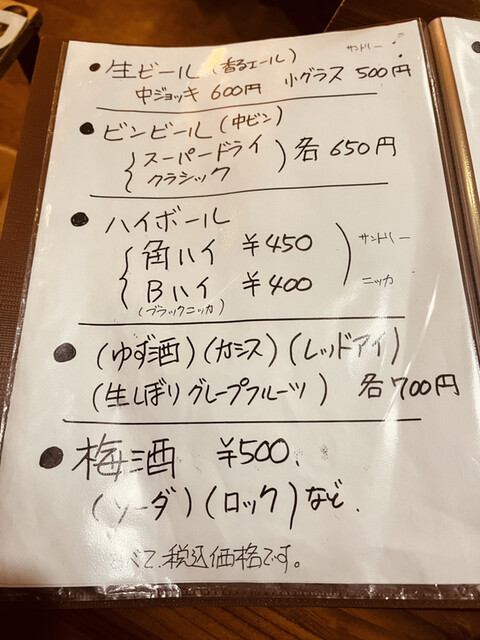 ● 生ビール (香るエール) サントリー
中ジョッキ 600円 小グラス 500円
● ビンビール (中ビン)
スーパードライ
クラシック
各 650円
● ハイボール
角ハイ ¥450 サントリー
Bハイ ¥400 ニッカ
(ブラックニッカ)
● (ゆず酒) (カシス) (レッドアイ)
(生しぼりグレープフルーツ) 各700円
● 梅酒 ¥500、
(ソーダ) (ロック) など、
べて、税込価格です。